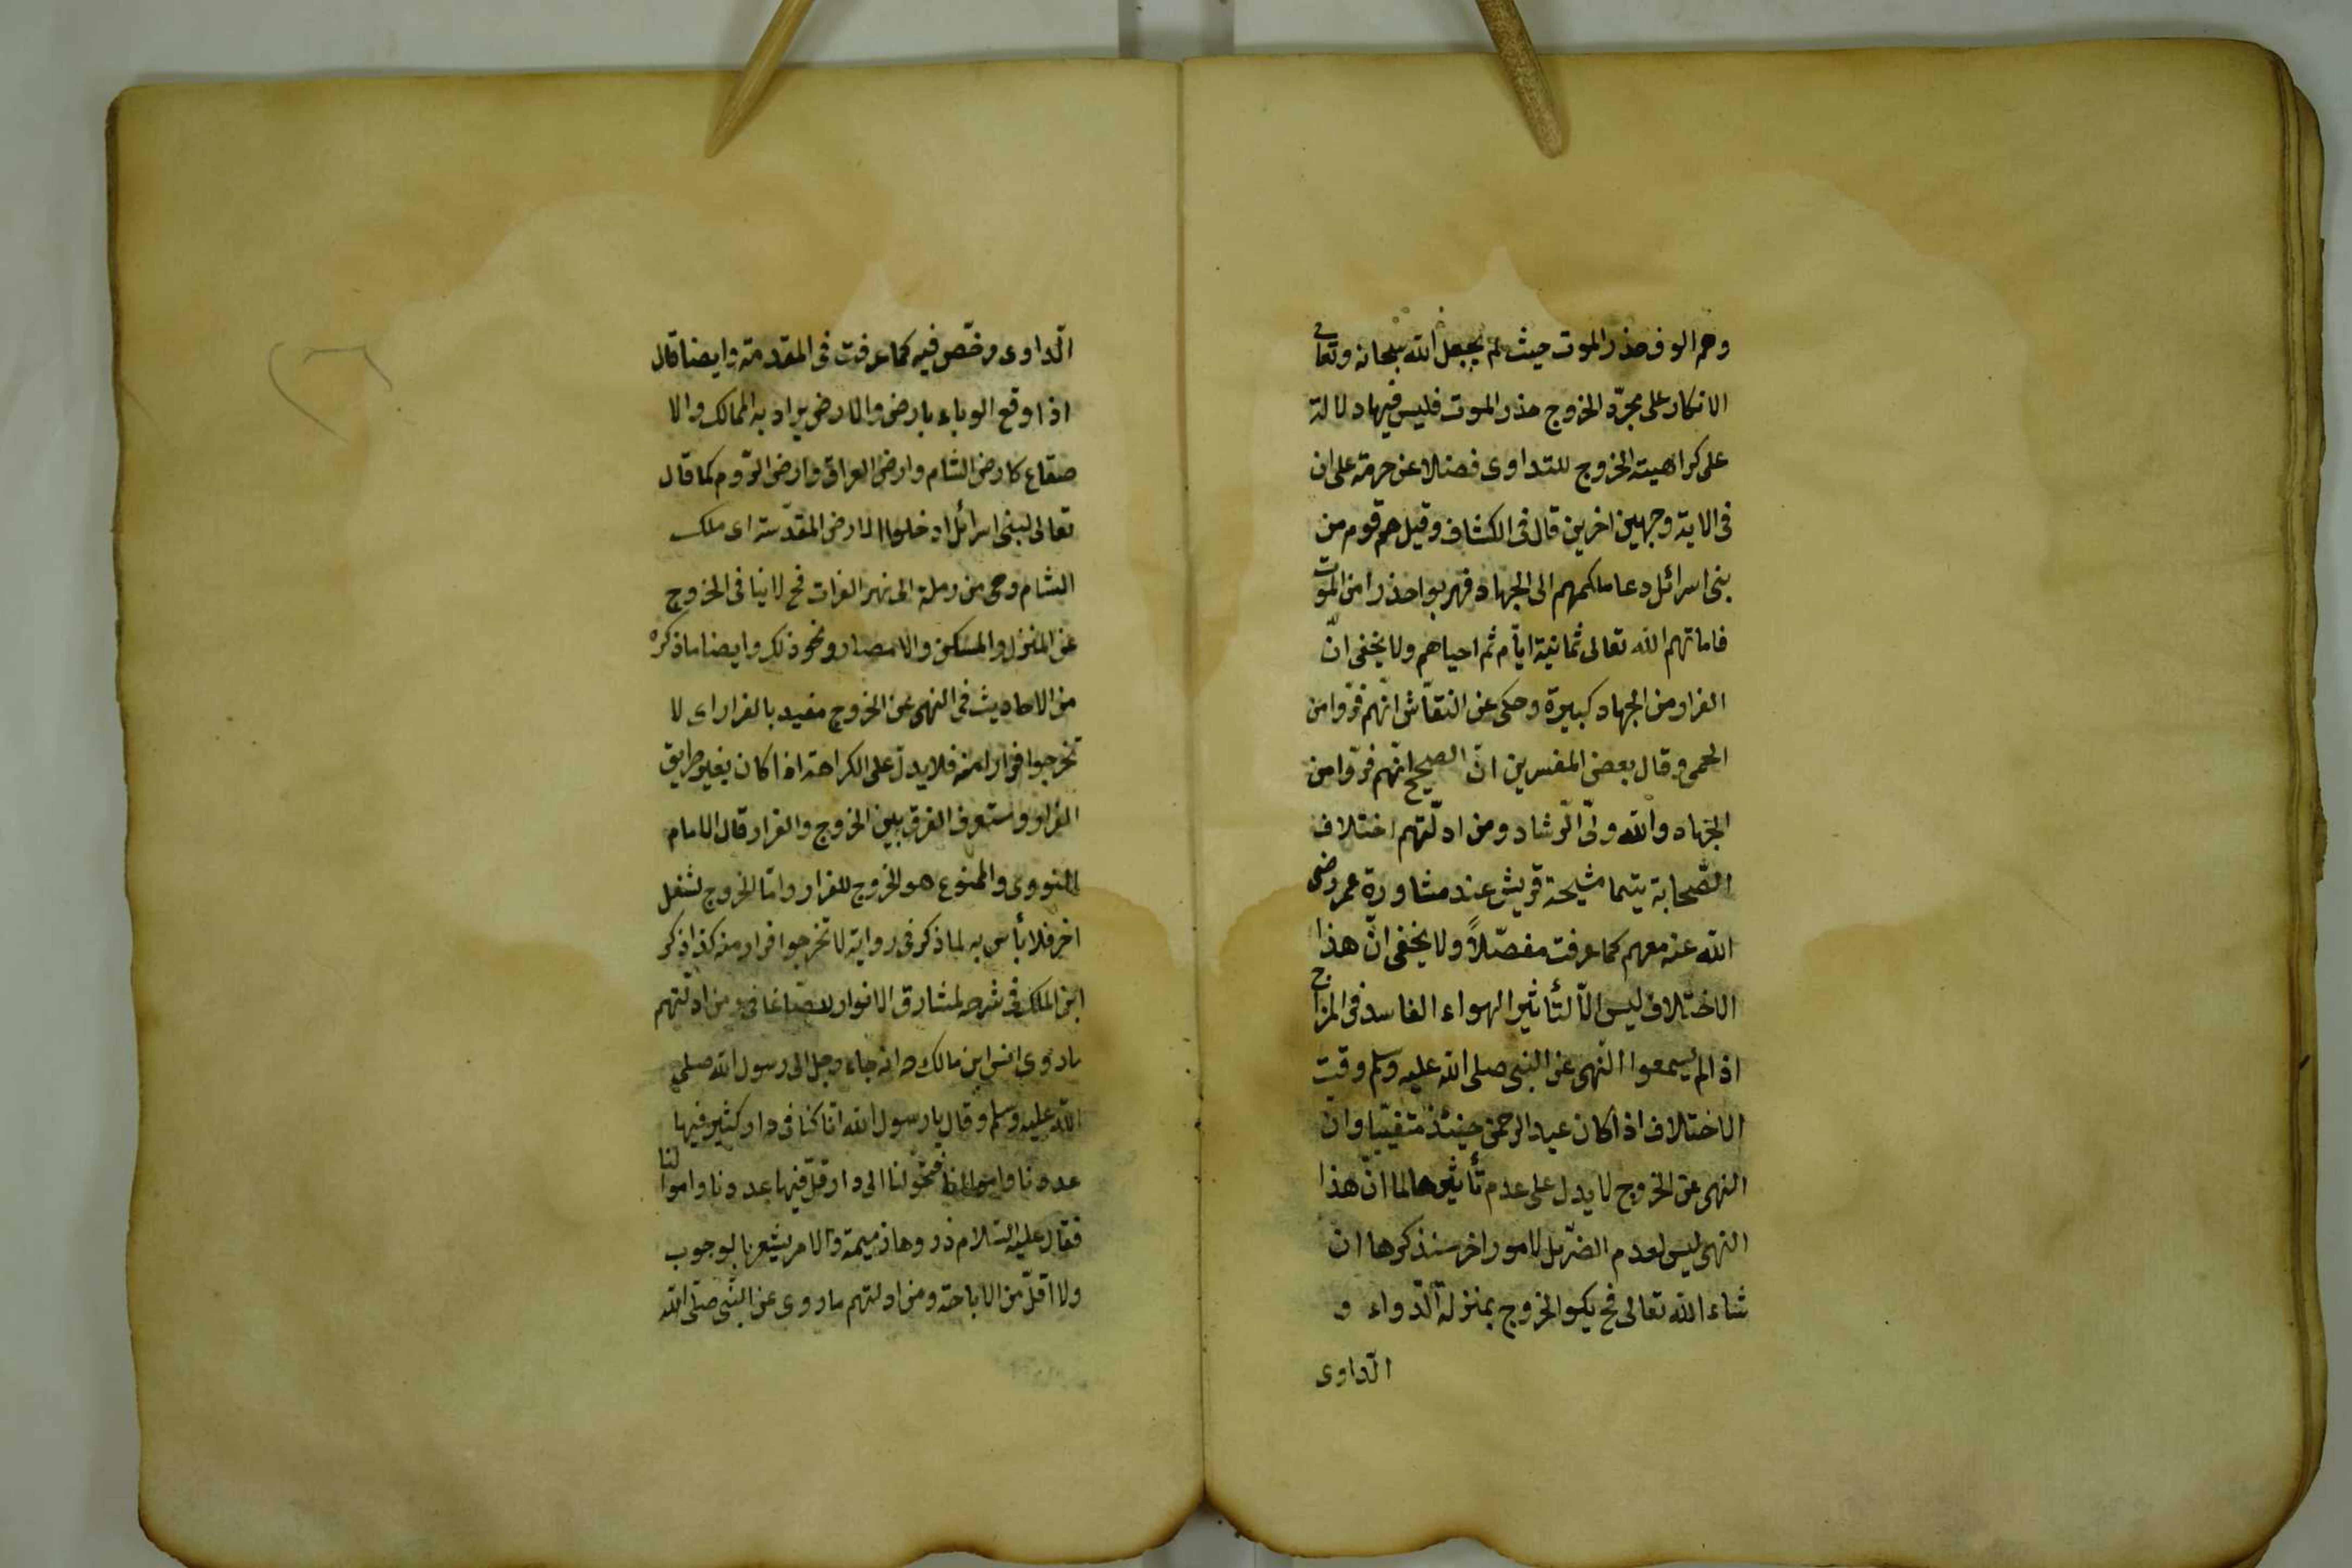 وهم الوف حذر الموت حيث لم يجعل الله سبحانه وتعالى
الانكار على مجرّد الخروج حذر الموت فليس فيها دلالة
على كراهية الخروج للتداوى فضلا عن حرمة على ان
فى الاية وجهين اخرين قال فى الكشاف وقيل هم قوم من
بنى اسرائل دعا ملكهم الى الجهاد فهربوا حذرا من الموت
فاماتهم الله تعالى ثمانية ايّام ثم احياهم ولا يخفى انّ
الفرار من الجهاد كبيرة وحكى عن النقّاش انّهم فرّوا من
الحمى وقال بعض المفسرين انّ الصحيح انّهم فرّوا من
الجهاد والله ولىّ الرّشاد ومن ادلّتهم اختلاف
الصّحابة سيما مشيخة قريش عند مشاورة عمر رضى
الله عنه معهم كما عرفت مفصّلاً ولا يخفى انّ هذا
الاختلاف ليس الّا لتأثير الهواء الفاسد فى المزاج
اذ لم يسمعوا النّهى عن النبى صلى الله عليه وسلم وقت
الاختلاف اذ كان عبد الرحمن حينئذ متغيّبا وان
النهى عن الخروج لا يدل على عدم تأثيرها لما انّ هذا
النهى ليس لعدم الضرّ بل لامور اخر سنذكرها ان
شاء الله تعالى فح يكو الخروج بمنزلة الدّواء و
الدّاوى
الدّاوى ورخّص فيه كما عرفت فى المقدمة وايضا قال
اذا وقع الوباء بارض والارض يراد به الممالك والا
صقاع كارض الشام وارض العراق وارض الرّوم كما قال
تعالى لبنى اسرائل ادخلوا الارض المقدّسة اى ملك
الشام وهى من رملة الى نهر الفرات فح لا ينافى الخروج
عن المنزل والمسكن والامصار ونحو ذلك وايضا ما ذكره
من الاحاديث فى النهى عن الخروج مقيد بالفرار اى لا
تخرجوا فرارا منه فلا يدلّ على الكراهة اذا كان بغير طريق
الفرار وستعرف الفرق بين الخروج والفرار قال الامام
النووى والممنوع هو الخروج للفرار وامّا الخروج لشغل
اخر فلا بأس به لما ذكر فى رواية لا تخرجوا فرار منه كذا ذكر
ابن الملك فى شرحه لمشارق الانوار للصّاغانى ومن ادلّتهم
ما روى انس ابن مالك انه جاء رجل الى رسول الله صلى
الله عليه وسلم وقال يا رسول الله انّا كنا فى دار كثير فيها
عددنا واموالنا فتحولنا الى دار قلّ فيها عددنا واموالنا
فقال عليه السّلام ذروها ذميمة والامر يشعر بالوجوب
ولا اقلّ من الاباحة ومن ادلتهم ما روى عن النّبى صلّى الله